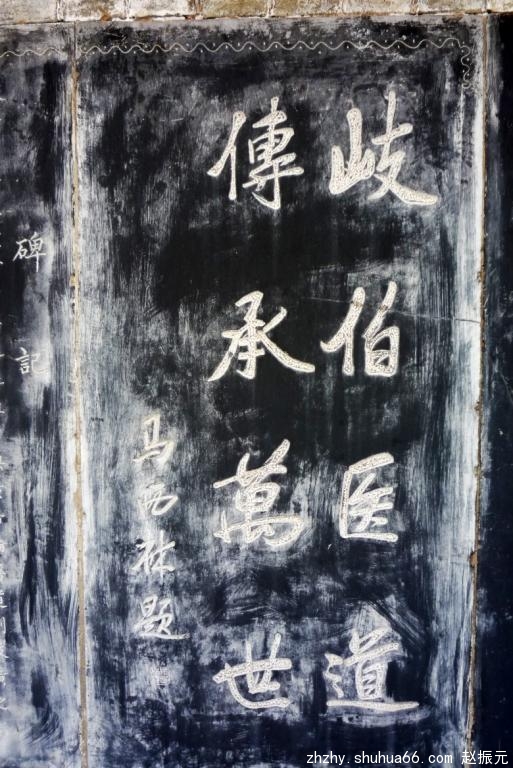 岐伯医道
傳承萬世
马西林题
碑記
zhzhy.shuhua66.com 赵振元